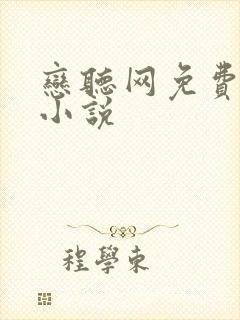 戀聽网免費
小説
程學東